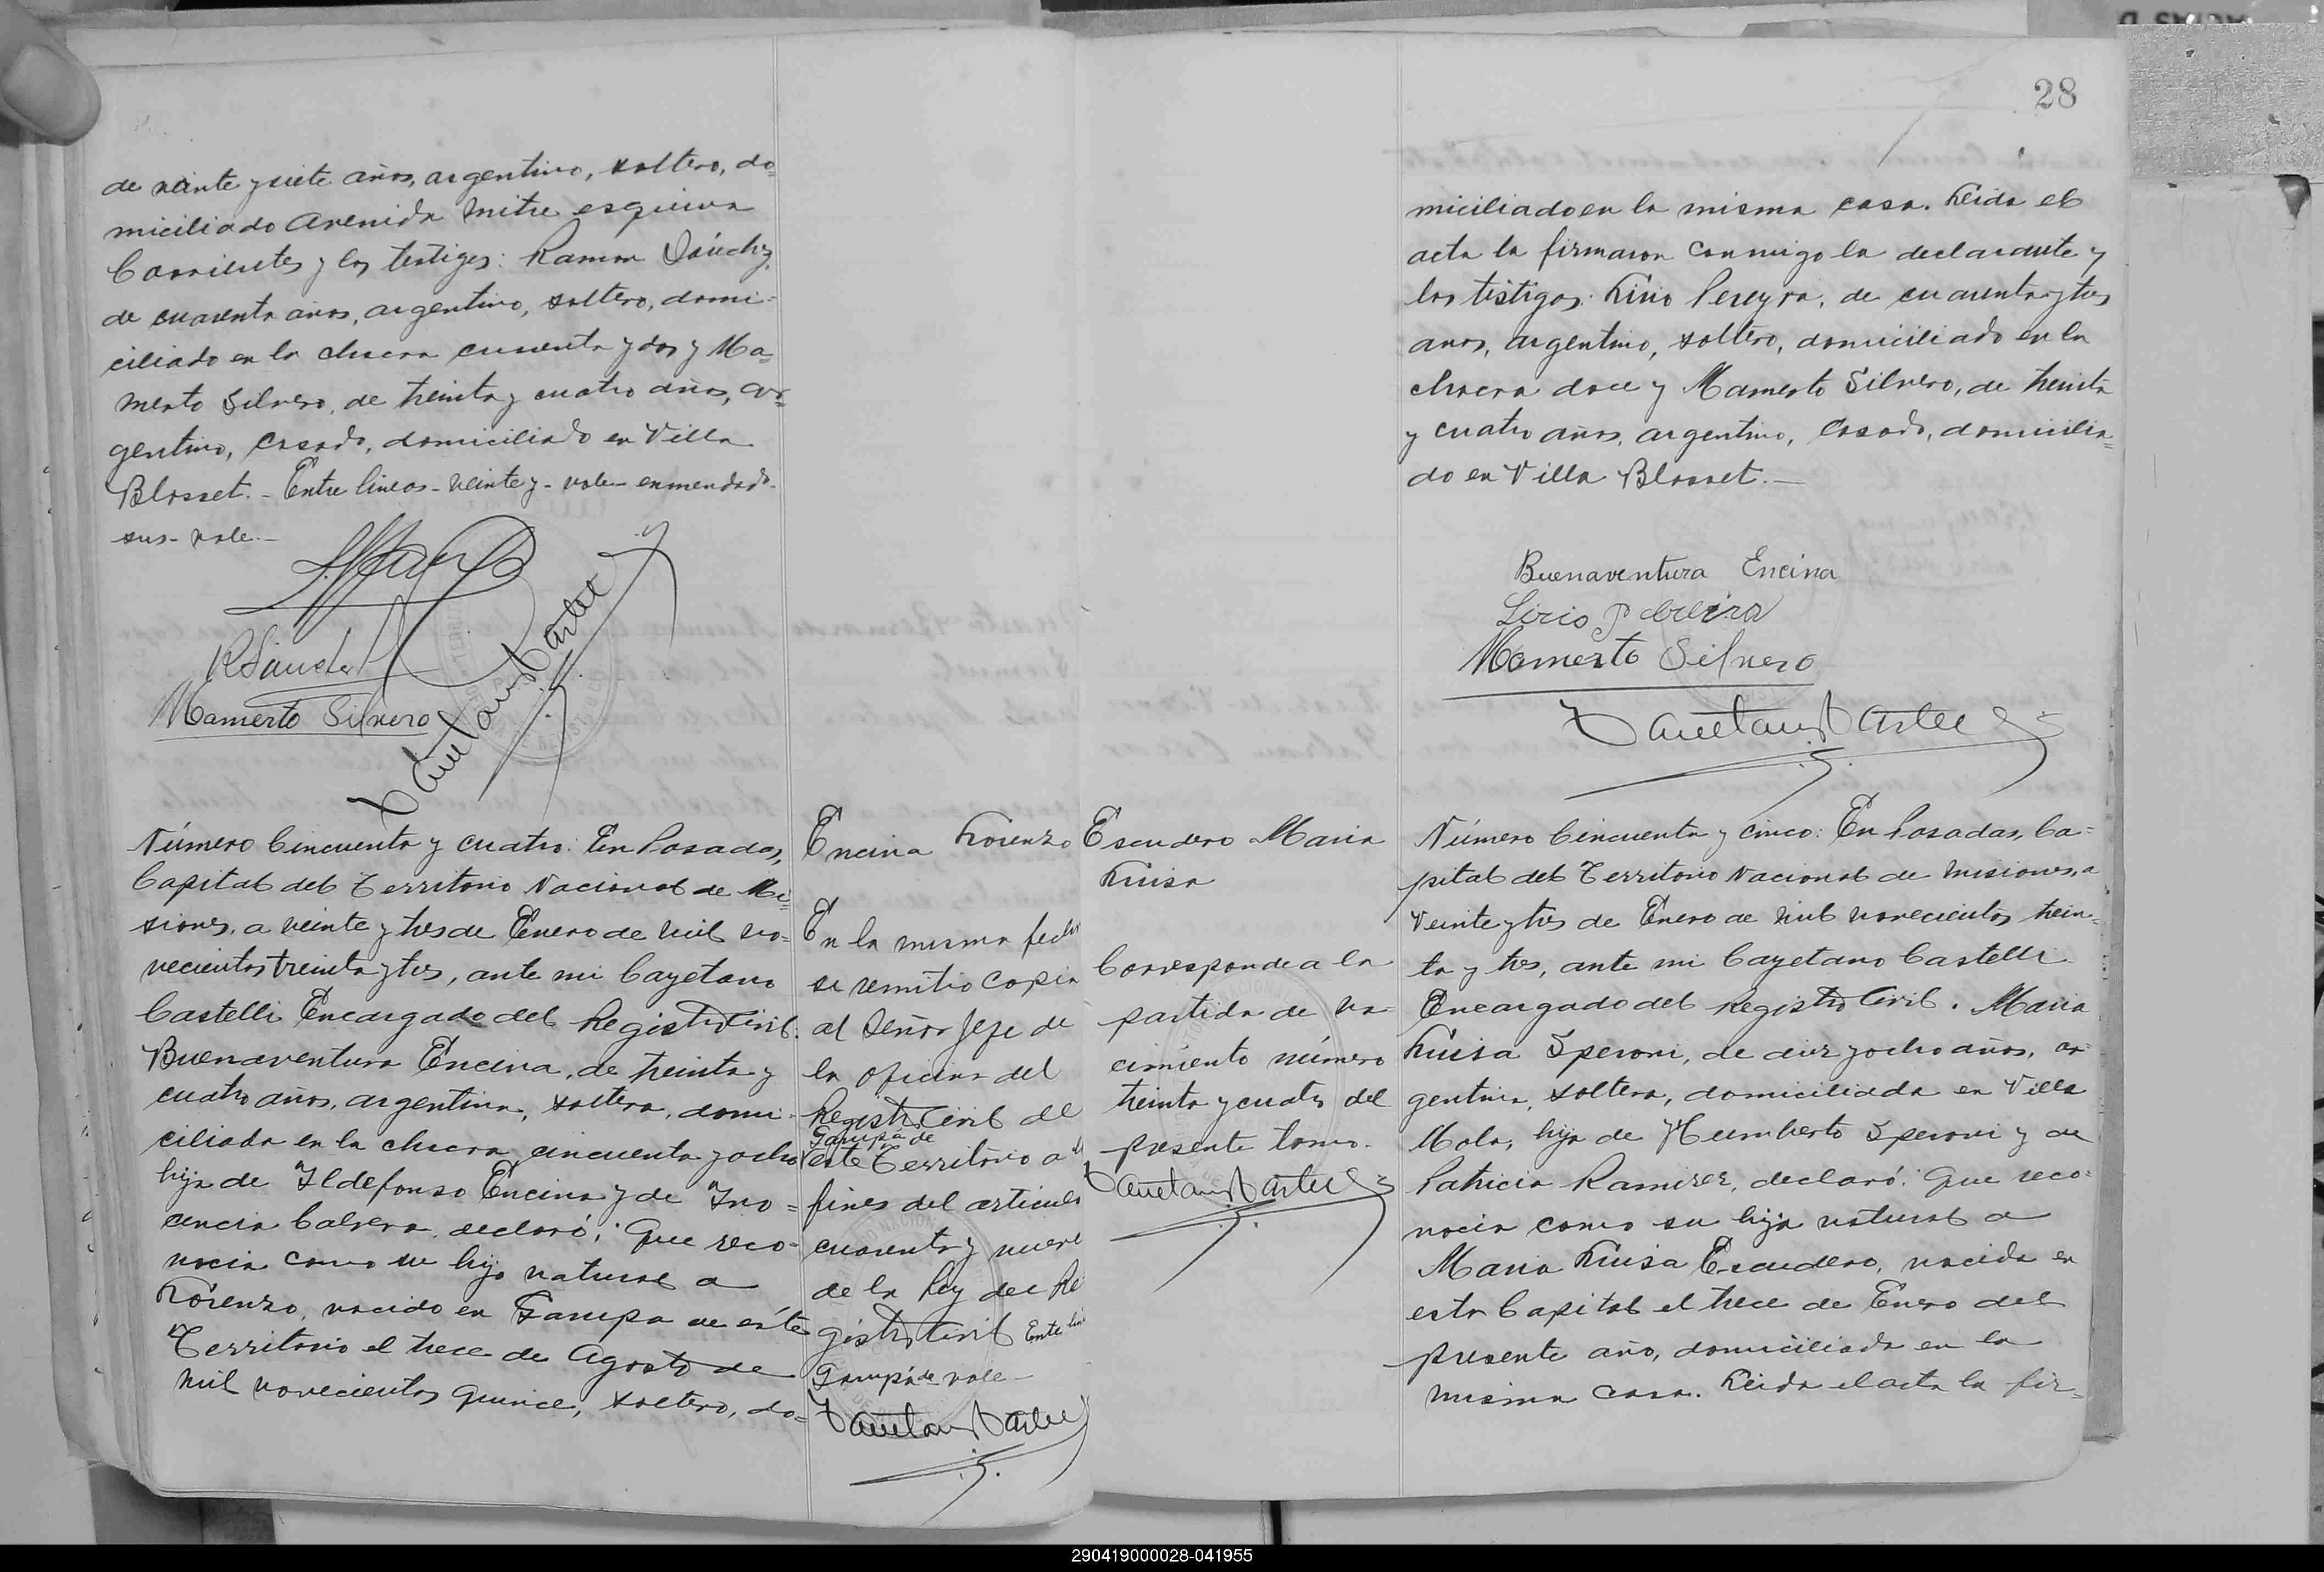 28
de veinte y siete años, argentino, soltero, do=
miciliado Avenida Mitre esquina
Corrientes y los testigos: Ramon Sánchez,
de cuarenta años, argentino, soltero, domi-
ciliado en la chacra cuarenta y dos y Ma=
merto Silvero, de treinta y cuatro años, ar=
gentino, casado, domiciliado en Villa
Blosset.- Entre lineas-veinte y-vale-enmendado-
sus-vale.-
RSánchez
Mamerto Silvero
Cayetano Castelli
Número Cincuenta y cuatro: En Posadas,
Capital del Territorio Nacional de Mi=
siones, a veinte y tres de Enero de mil no=
vecientos treinta y tres, ante mi Cayetano
Castelli Encargado del Registro Civil.
Buenaventura Encina, de treinta y
cuatro años, argentina, soltera, domi-
ciliada en la chacra cincuenta y ocho
hija de Ildefonso Encina y de Ino=
cencia Cabrera, declaró: Que reco-
nocia como su hijo natural a
Lorenzo, nacido en Garupa de éste
Territorio el trece de Agosto de
mil novecientos quince, soltero, do=
Encina Lorenzo
En la misma fecha
se remitio copia
al Señor Jefe de
la oficina del
Registro Civil de
Garupa de
este Territorio a
fines del articulo
cuarenta y nueve
de la Ley del Re
gistro Civil Entre
Garupá de vale-
Cayetano Castelli
Escudero Maria
Luisa
Corresponde a la
partida de na-
cimiento número
treinta y cuatro del
presente tomo.
Cayetano Castelli
miciliado en la misma casa. Leida el
acta la firmaron conmigo la declarante y
los testigos: Lirio Pereyra, de cuarenta y tres
años, argentino, soltero, domiciliado en la
chacra doce y Mamerto Silvero, de treinta
y cuatro años, argentino, casado, domicilia=
do en Villa Blosset.-
Buenaventura Encina
Lirio Pereira
Mamerto Silvero
Cayetano Castelli
Número Cincuenta y cinco: En Posadas, Ca=
pital del Territorio Nacional de Misiones, a
veinte y tres de Enero de mil novecientos trein=
ta y tres, ante mi Cayetano Castelli
Encargado del Registro Civil. Maria
Luisa Speroni, de diez y ocho años, ar-
gentina, soltera, domiciliada en Villa
Mola, hija de Humberto Speroni y de
Patricia Ramirez, declaró: Que reco=
nocia como su hija natural a
Maria Luisa Escudero, nacida en
esta Capital el trece de Enero del
presente año, domiciliada en la
misma casa. Leida el acta la fir=
290419000028-041955